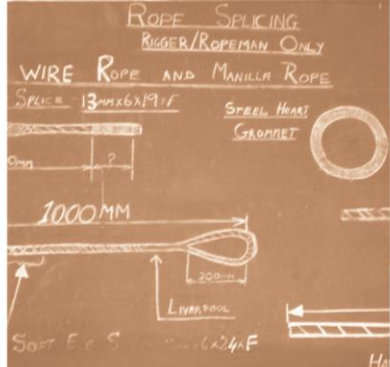 ROPE SPLICING
RIGGER/ROPEMAN ONLY
WIRE ROPE AND MANILLA ROPE
SPLICE 13MMX6X19XF
STEEL HEART
GROMMET
0MM
?
1000MM
200MM
LIVERPOOL
SOFT E S 6X24XF
HA